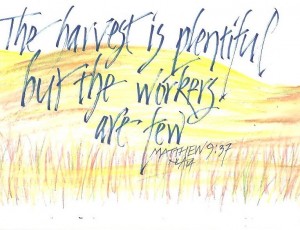 The harvest is plentiful
but the workers
are few
MATTHEW 9:37